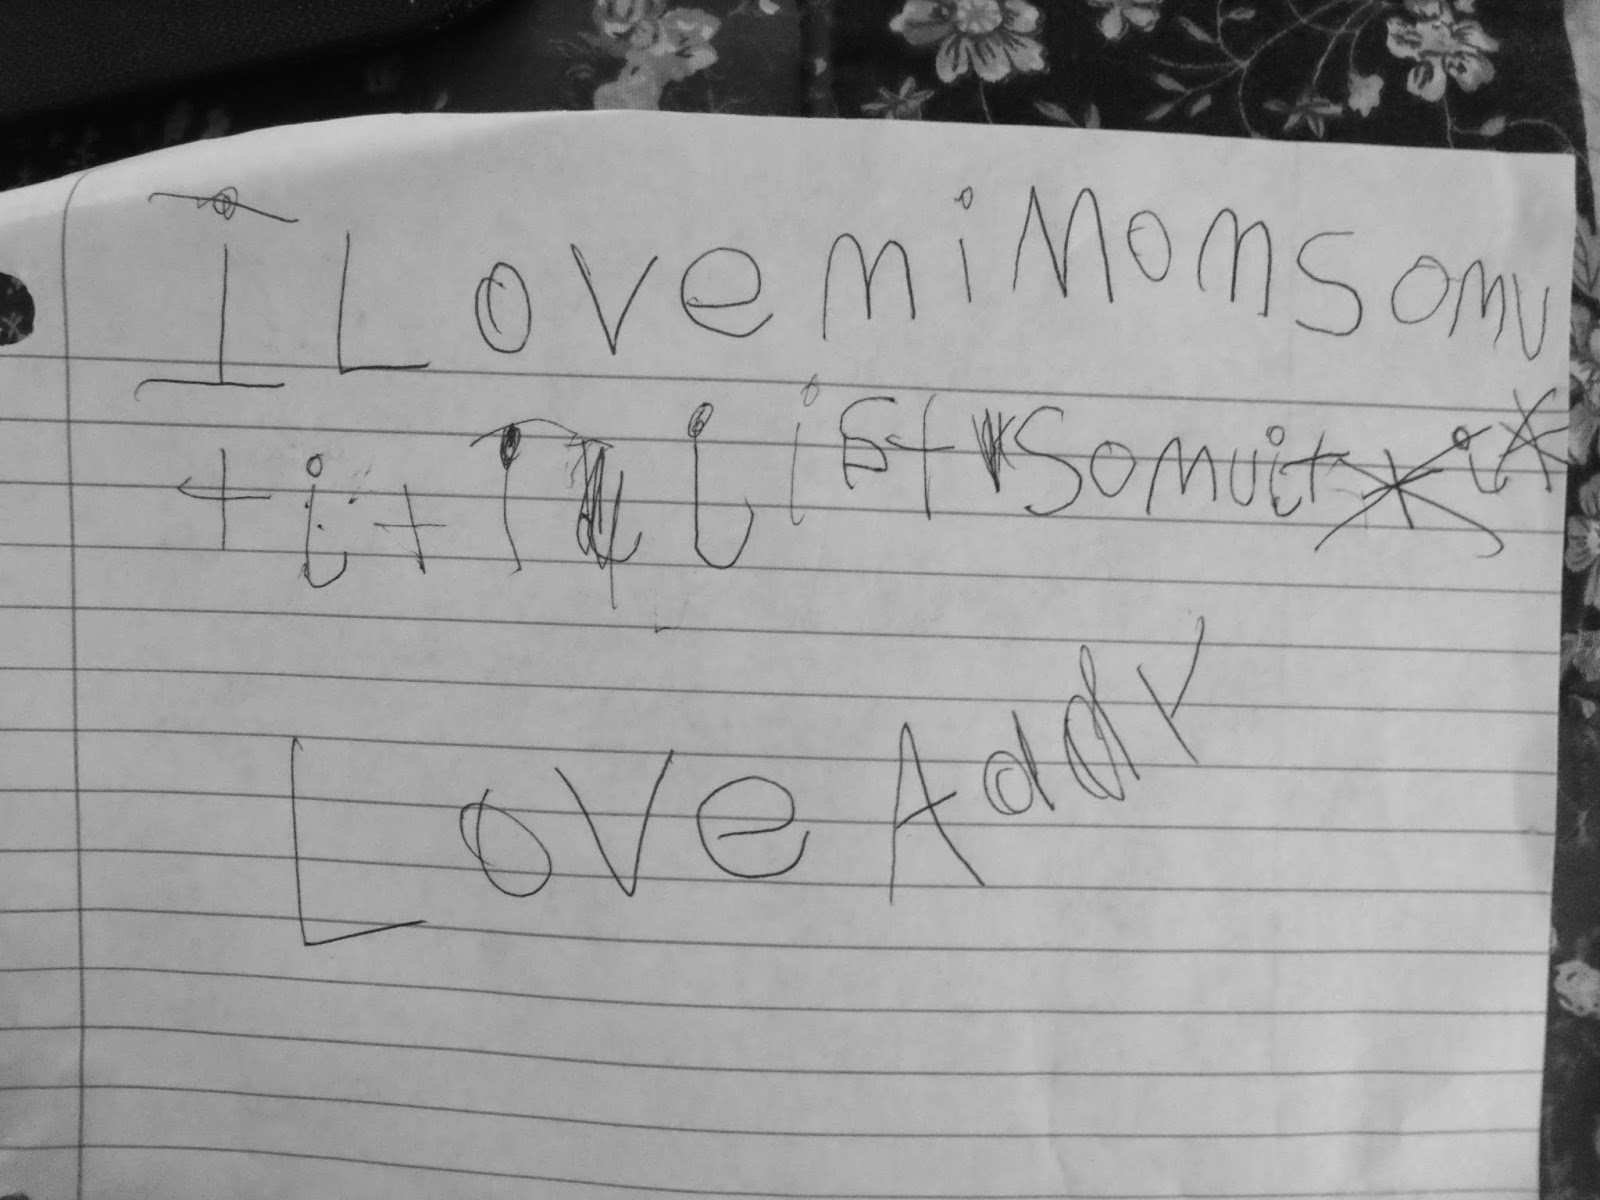 I Love mi Mom somu
tit I List somuit
Love Addy